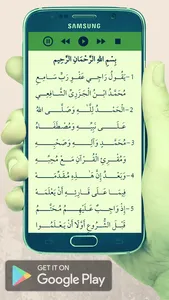 SAMSUNG
بِسْمِ اللهِ الرَّحْمَانِ الرَّحِيمِ
1- يَقُولُ رَاجِي عَفْوِ رَبٍّ سَامِعِ
مُحَمَّدُ ابْنُ الْجَزَرِيِّ الشَّافِعِي
2- الْحَمْدُ لِلَّهِ وَصَلَّى اللهُ
عَلَى نَبِيِّهِ وَمُصْطَفَاهُ
3- مُحَمَّدٍ وَآلِهِ وَصَحْبِهِ
وَمُقْرِئِ الْقُرْآنِ مَعْ مُحِبِّهِ
4- وَبَعْدُ إِنَّ هَذِهِ مُقَدِّمَهْ
فِيمَا عَلَى قَارِئِهِ أَنْ يَعْلَمَهْ
5- إِذْ وَاجِبٌ عَلَيْهِمُ مُحَتَّمُ
قَبْلَ الشُّرُوعِ أَوَّلًا أَنْ يَعْلَمُوا
GET IT ON
Google Play